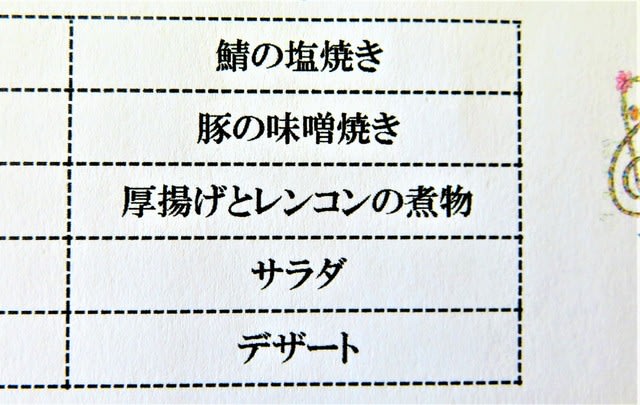 鯖の塩焼き
豚の味噌焼き
厚揚げとレンコンの煮物
サラダ
デザート